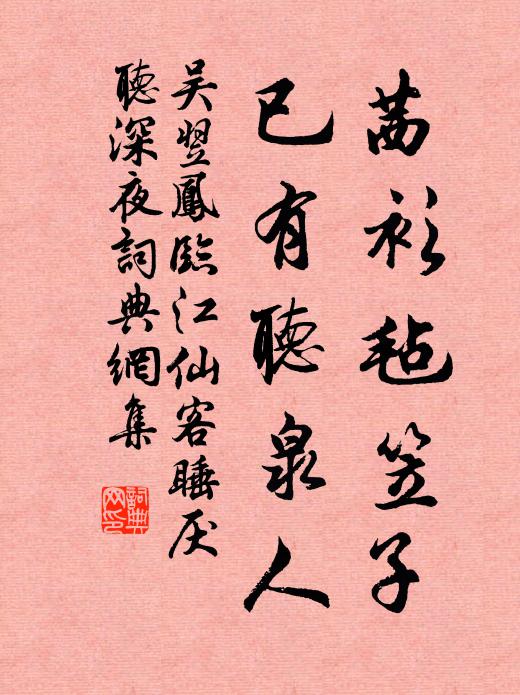 茜衫毡笠子
已有聽泉人
吴翌鳳臨江仙客睡厌
聽深夜詞典網集
詞典
网印